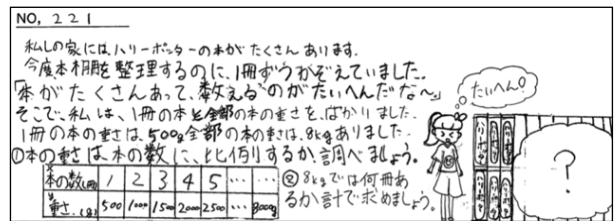 NO, 221
私しの家には、ハリーポッターの本が たくさん あります.
今度本棚を整理するのに、1冊ずつかぞえていました.
「本が たくさんあって、数えるのがたいへんだな〜」
そこで、私は、1冊の本と全部の本の重さを、はかり ました.
1冊の本の重さは、500g全部の本の重さは、8kgありました.
①本の重さは、本の数に、比例するか、調べましょう.
本の数(冊) 1 2 3 4 5 …… ……
重さ(g) 500 1000 1500 2000 2500 …… 8000g
② 8kgでは何冊あ
るか計で求めましょう。
たいへん○
?